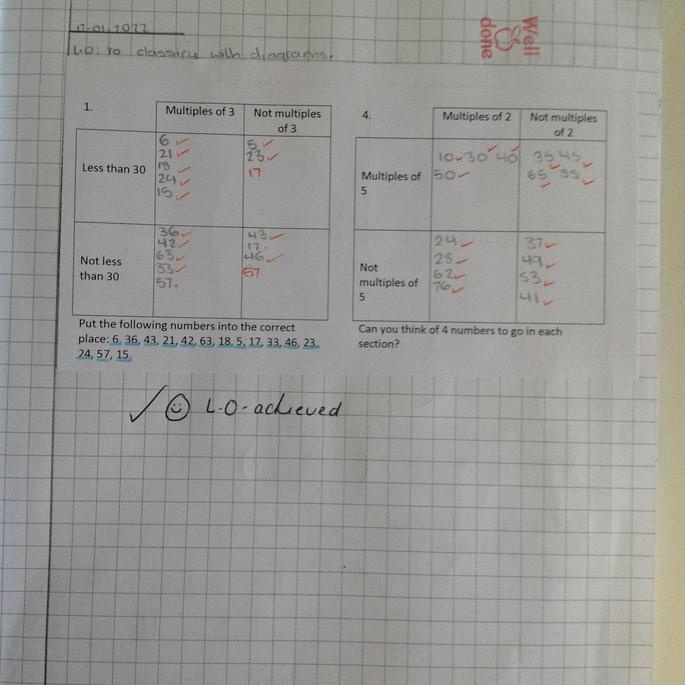 17.01.2022
Well done
L.O: To classify with diagrams.
1.
Multiples of 3
Not multiples of 3
Less than 30
6
21
18
24
15
5
23
17
Not less than 30
36
42
63
33
57.
43
17.
46
57
Put the following numbers into the correct
place: 6, 36, 43, 21, 42, 63, 18, 5, 17, 33, 46, 23,
24, 57, 15,
4.
Multiples of 2
Not multiples of 2
Multiples of 5
10 30 40
50
35 45
65 55
Not multiples of 5
24
28
62
76
37
49
53
41
Can you think of 4 numbers to go in each
section?
L.O-achieved